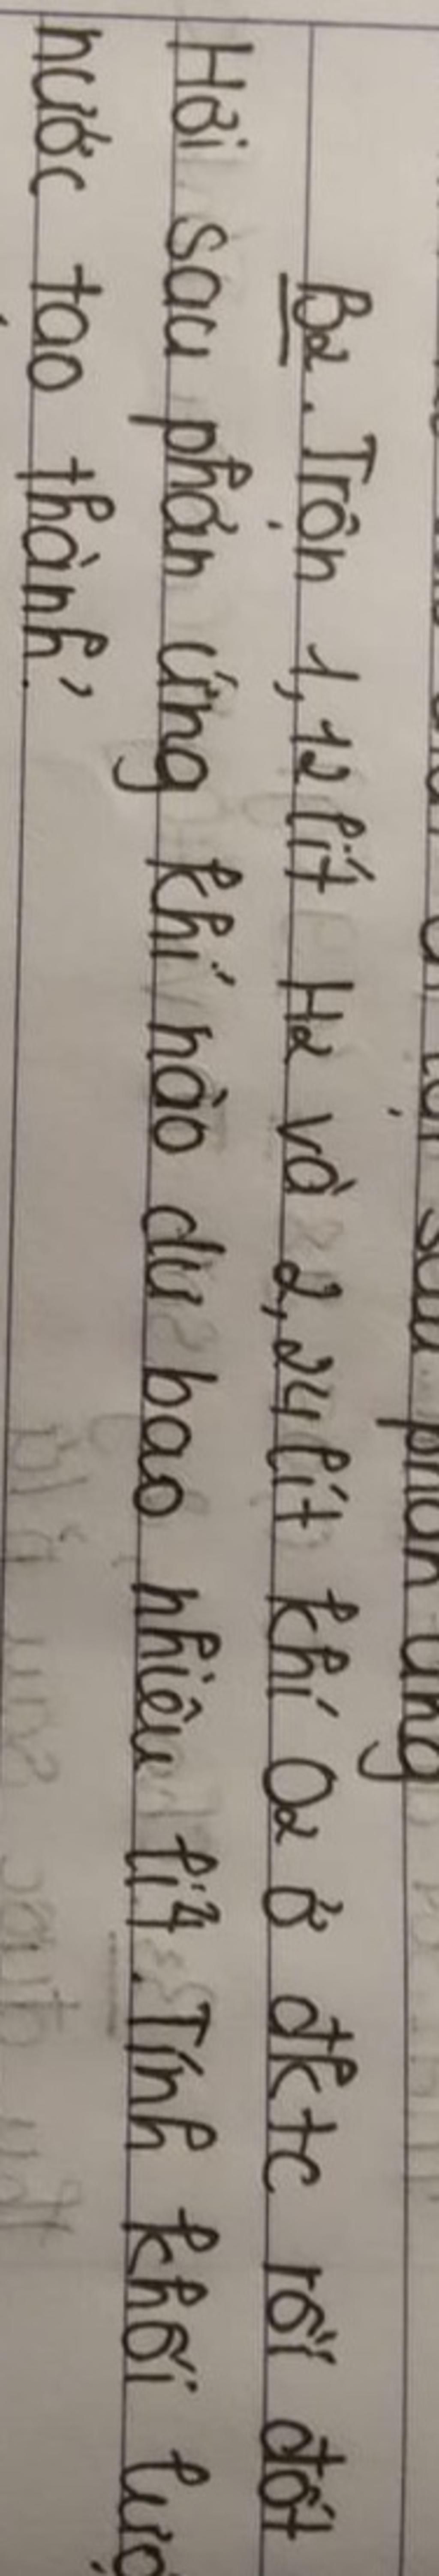 phản ứng
B2. Trộn 1,12 lít H2 và 2,24 lít khí O2 ở đktc rồi đốt
Hỏi sau phản ứng khí nào dư bao nhiêu lít. Tính khối
nước tạo thành.